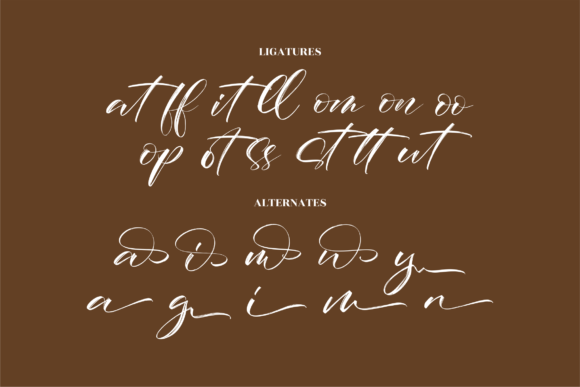 LIGATURES
at ff it ll om on oo
op ot ss St tt ut
ALTERNATES
a i m n y
a g i m n